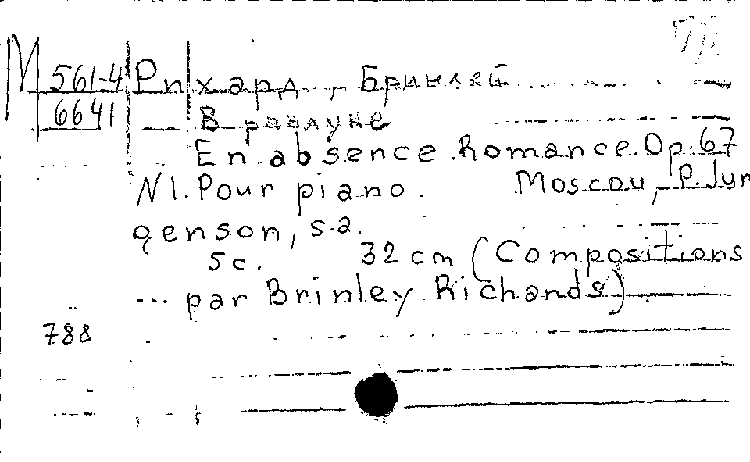 М 561-4 Рихард, Бринлей
6641 В разлуке
En absence. Romance. Op. 67
N1. Pour piano. Moscou, P. Jur
genson, s.a.
5 c. 32 cm (Compositions
... par Brinley Richards)
788